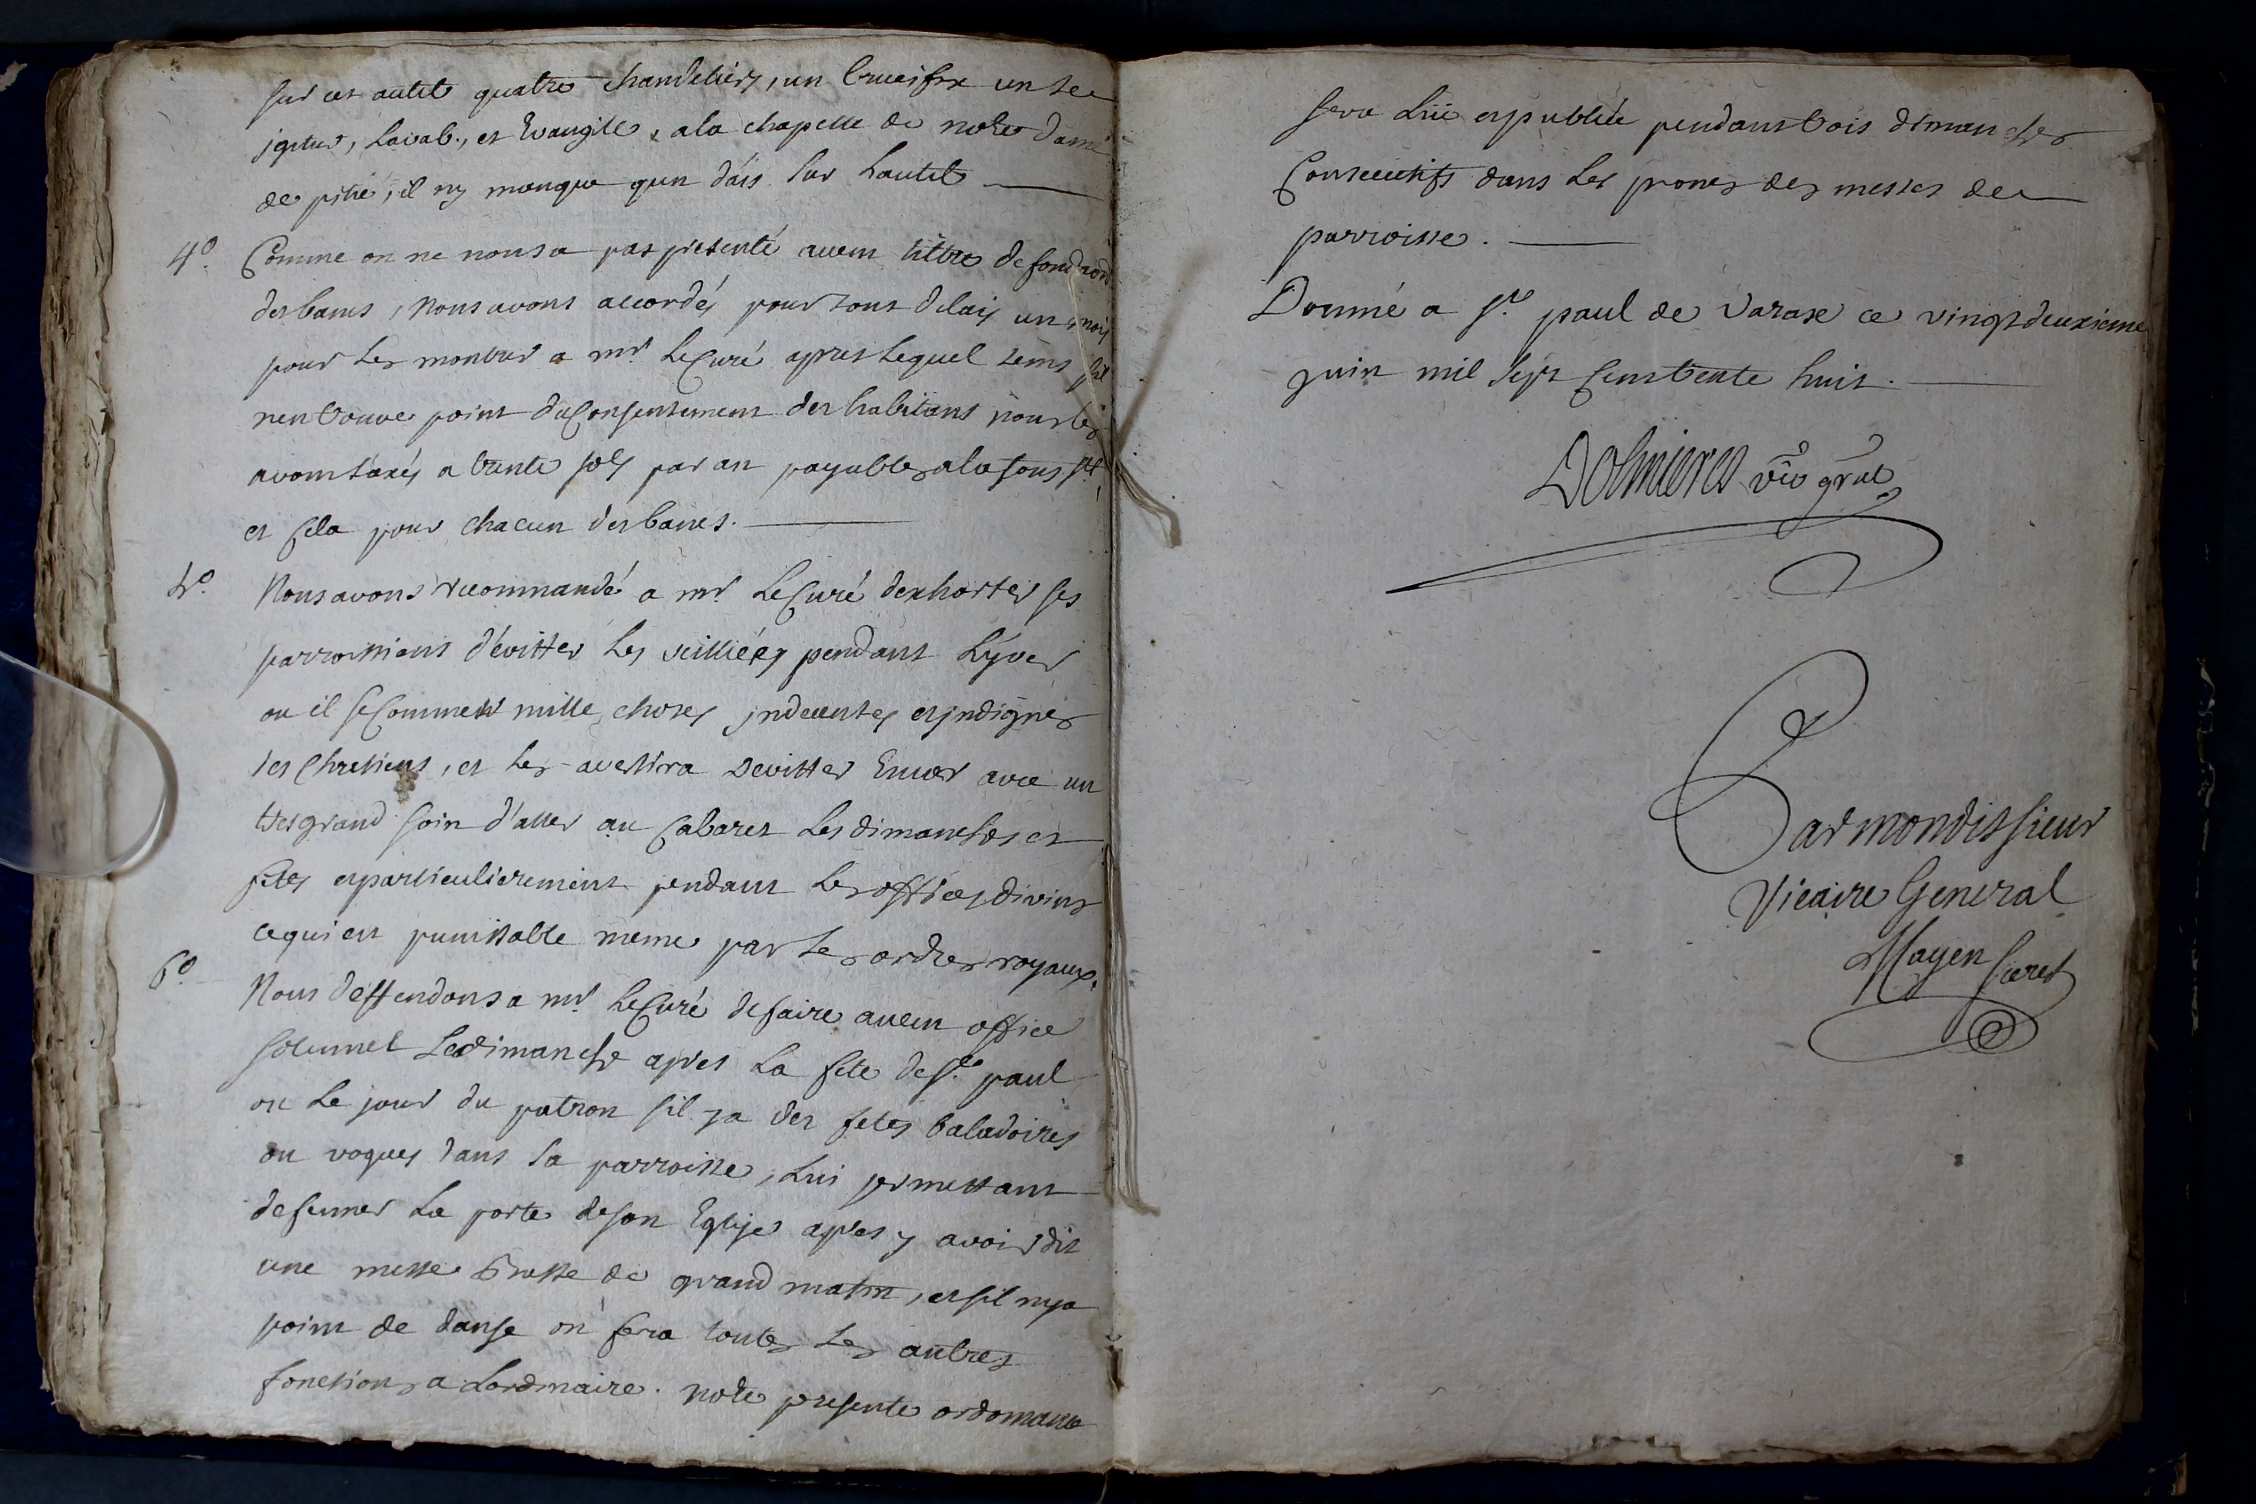 sur cet autel quatre chandeliers, un Crucifix un te
jgitur, Lavab., et Evangille, a la chapelle de notre dame
de pitié, il ny manque qun dáis sur Lautel
4.º Comme on ne nous a pas presenté aucun tittre de fondaõn
des bancs, Nous avons accordés pour tout delais un mois
pour Les montrer a mr. Le Curé apres Lequel tems sil
nen trouve point du Consentement des habitans nous les
avons taxés a trente sols par an payables a la
et Cela pour chacun des bancs.
5.º Nous avons recommandé a mr. Le Curé dexhorter ses
parroissiens d'évitter Les veilliées pendant Lyver
ou il se Commet mille choses jndecentes et jndignes
des Chretiens, et Les avertira Devitter Encor avec un
tres grand soin d'aller au Cabaret Les dimanches et
fetes et particulierement pendant Les offices divins
ce qui est punissable meme par Les ordres royaux.
6.º Nous deffendons a mr. Le Curé de faire aucun office
solemnel Le dimanche apres La fete de st. paul
ou Le jour du patron sil y a des fetes baladoires
ou vogues dans sa parroisse, Lui permettant
de fermer La porte de son Eglise apres y avoir dit
une messe Basse de grand matin, et sil ny a
point de danse on fera toutes Les autres
fonctions a Lordinaire. notre presente ordonnance
sera Lüe et publiée pendant trois dimanches
Consecutifs dans Les prones des messes de
parroisse.
Donné a st. paul de Varax ce vingt deuxieme
juin mil sept Cens trente huit.
Dolmieres vic gral
Carmondissieur
Vicaire General
Mayen Secret